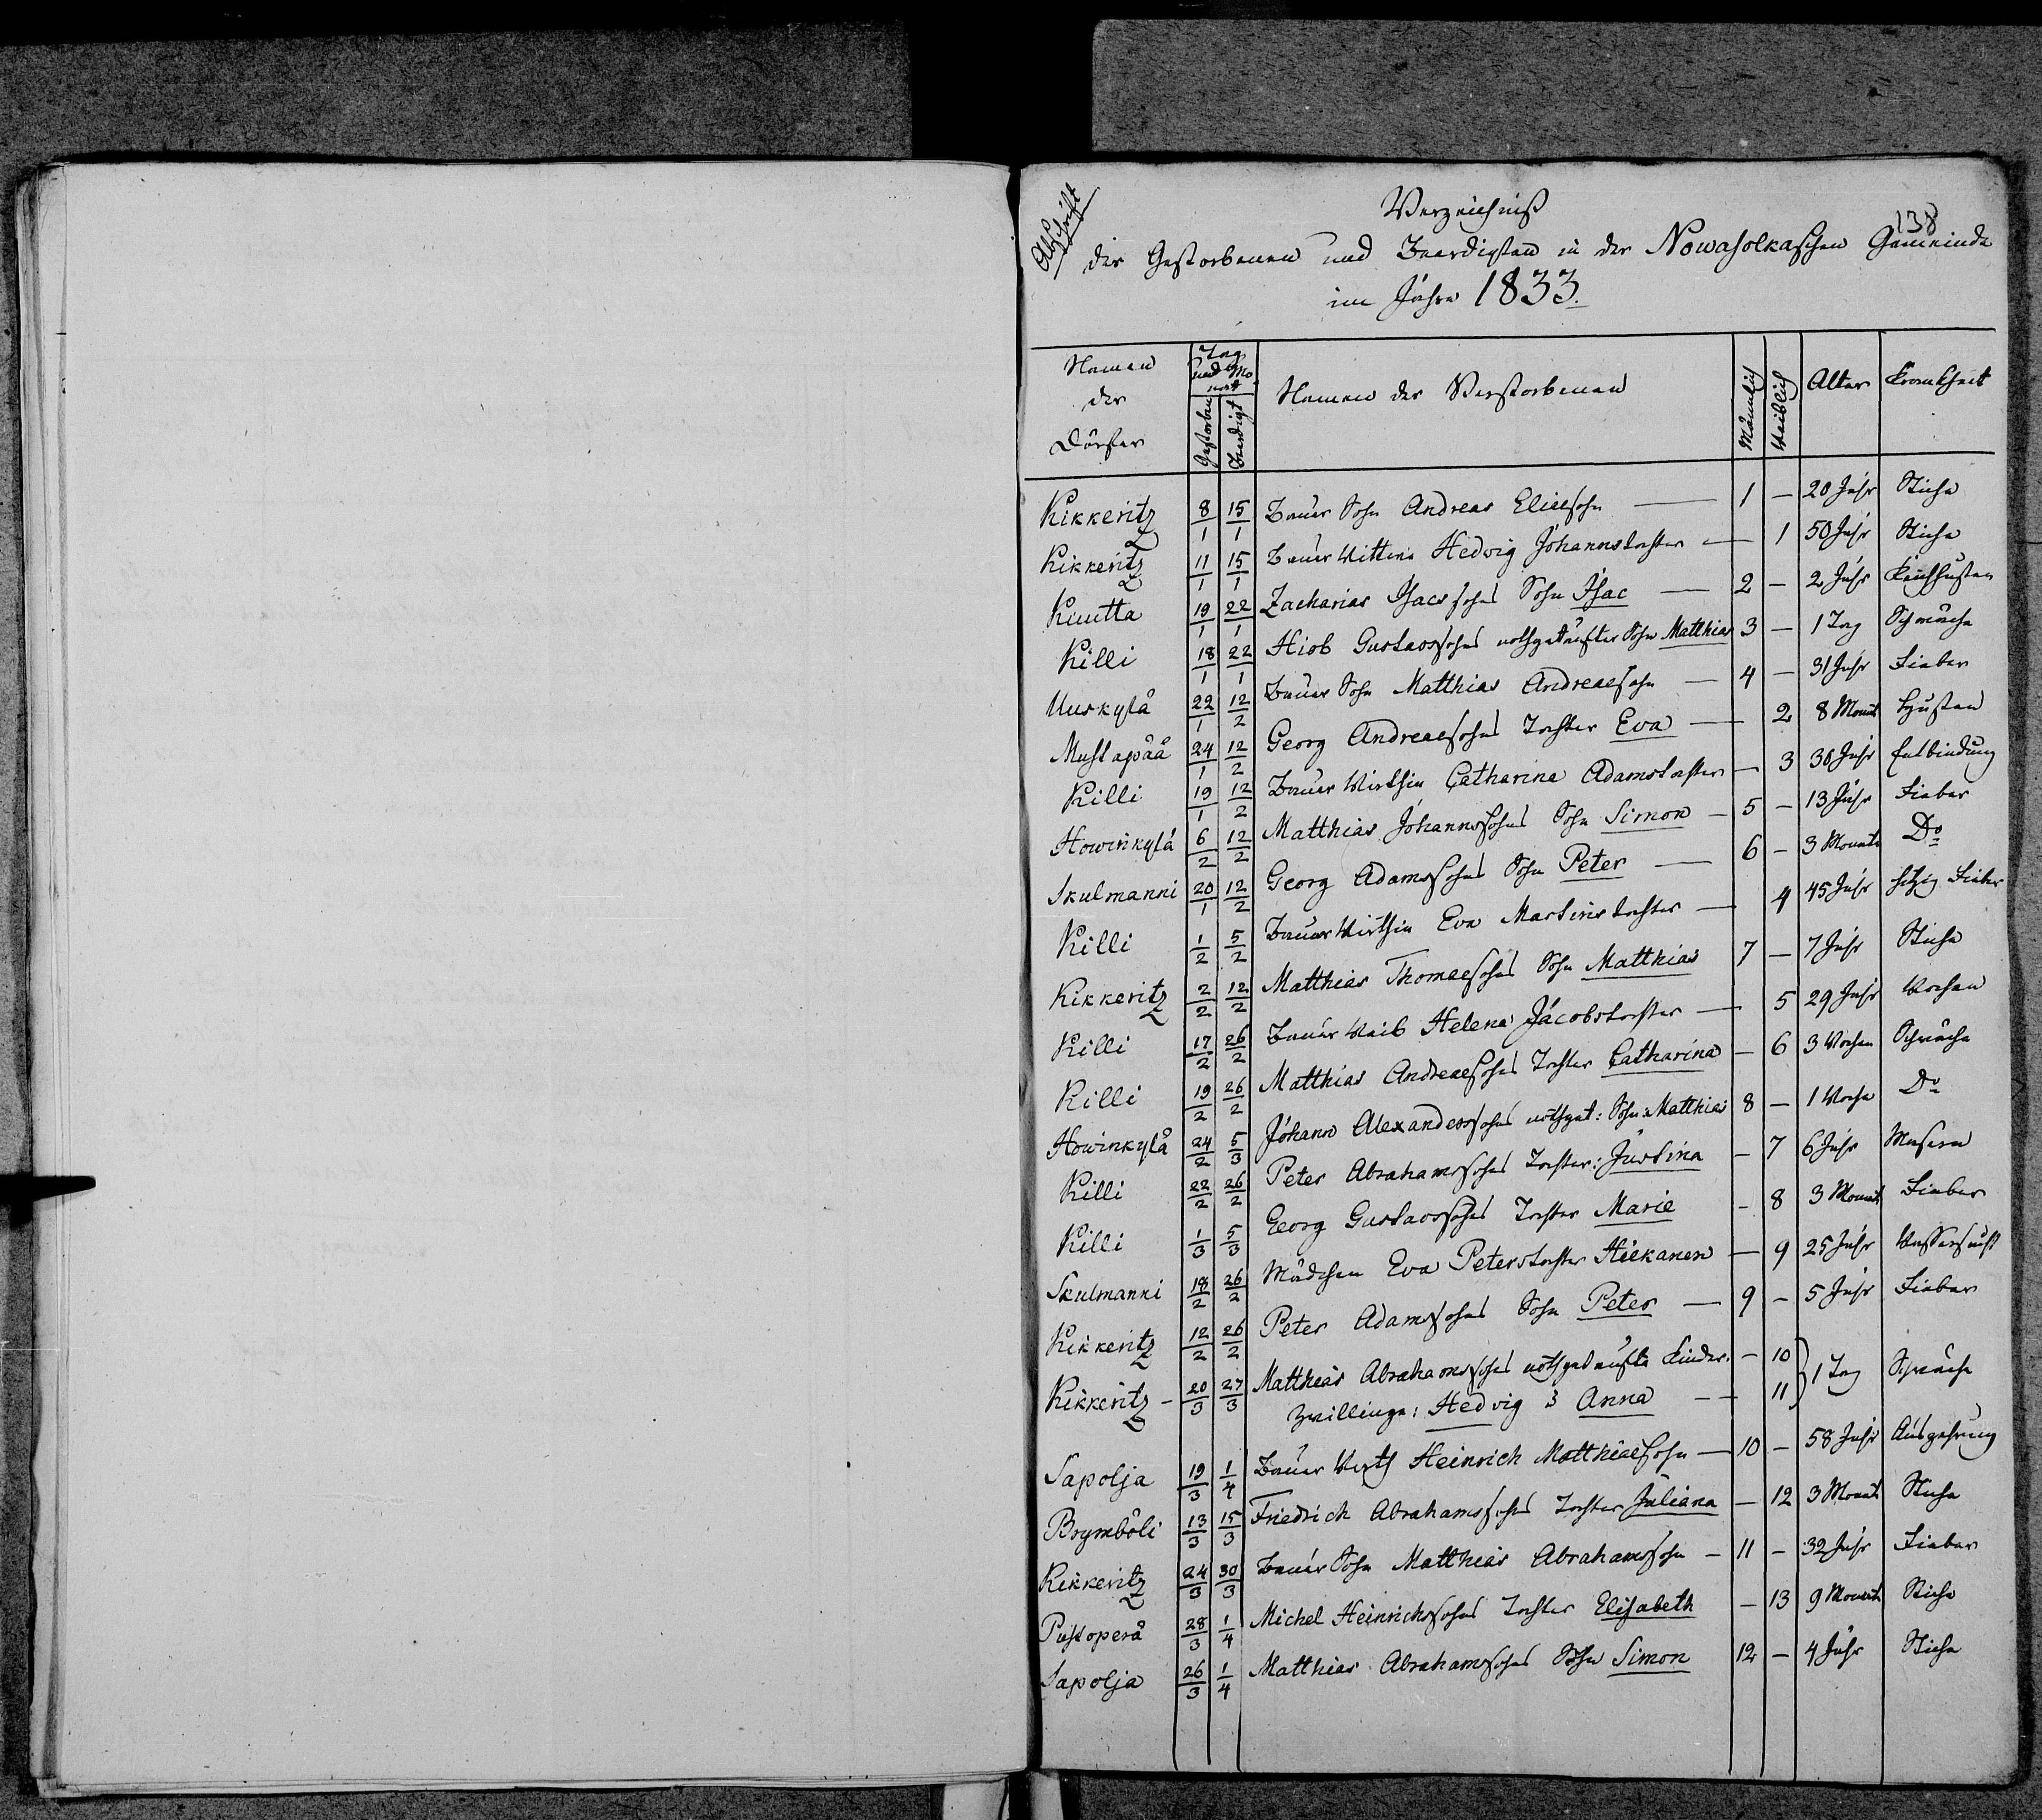 Abschrift
138
Verzeichniß
der Gestorbenen und Beerdigten in der Nowasolkaschen Gemeinde
im Jahre 1833.
Namen der Dörfer | Tag und Monat | Gestorben | Beerdigt | Namen der Verstorbenen | Männlich | Weiblich | Alter | Krankheit
Kikkeritz 8/1 15/1 Bauer Sohn Andreas Eliaesohn — 1 — 20 Jahr Stiche
Kikkeritz 11/1 15/1 Bauer Wittwe Hedwig Johannstochter — 1 50 Jahr Stiche
Kuutta 19/1 22/1 Zacharias Isacssohns Sohn Isac — 2 — 2 Jahr Keuchhusten
Killi 18/1 22/1 Hiob Gustavssohns nothgetaufter Sohn Matthias 3 — 1 Tag Schwäche
Uuskylä 22/1 12/2 Bauer Sohn Matthias Andreaesohn — 4 — 31 Jahr Fieber
Mustapää 24/1 12/2 Georg Andreaesohns Tochter Eva — 2 8 Monat Husten
Killi 19/1 12/2 Bauer Wirthin Catharina Adamstochter — 3 38 Jahr Entbindung
Howinkylä 6/2 12/2 Matthias Johannssohns Sohn Simon — 5 — 13 Jahr Fieber
Skulmanni 20/1 12/2 Georg Adamssohns Sohn Peter — 6 — 3 Monate Do
Killi 1/2 5/2 Bauer Wirthin Eva Martinstochter — 4 45 Jahr hitzig Fieber
Kikkeritz 2/2 12/2 Matthias Thomaesohns Sohn Matthias 7 — 7 Jahr Stiche
Killi 17/2 26/2 Bauer Weib Helena Jacobstochter — 5 29 Jahr Wochen
Killi 19/2 26/2 Matthias Andreaesohns Tochter Catharina — 6 3 Wochen Schwäche
Howinkylä 24/2 5/3 Johann Alexanderssohns nothget: Sohn: Matthias 8 — 1 Woche Do
Killi 22/2 26/2 Peter Abrahamssohns Tochter: Justina — 7 6 Jahr Masern
Killi 1/3 5/3 Georg Gustavssohns Tochter Marie — 8 3 Monat Fieber
Skulmanni 18/2 26/2 Mädchen Eva Peterstochter Hiekanen — 9 25 Jahr Wassersucht
Kikkeritz 12/2 26/2 Peter Adamssohns Sohn Peter — 9 — 5 Jahr Fieber
Kikkeritz — 20/3 27/3 Matthias Abrahamssohns nothgetaufte Kinder. — 10 } 1 Tag Schwäche
Zwillinge: Hedvig & Anna — 11
Sapolja 19/3 1/4 Bauer Wirth Heinrich Matthiaesohn — 10 — 58 Jahr Auszehrung
Brymböli 13/3 15/3 Friedrich Abrahamssohns Tochter Juliana — 12 3 Monat Stiche
Kikkeritz 24/3 30/3 Bauer Sohn Matthias Abrahamssohn — 11 — 32 Jahr Fieber
Pustoperä 28/3 1/4 Michel Heinrichssohns Tochter Elisabeth — 13 9 Monat Stiche
Sapolja 26/3 1/4 Matthias Abrahamssohns Sohn Simon 12 — 4 Jahr Stiche